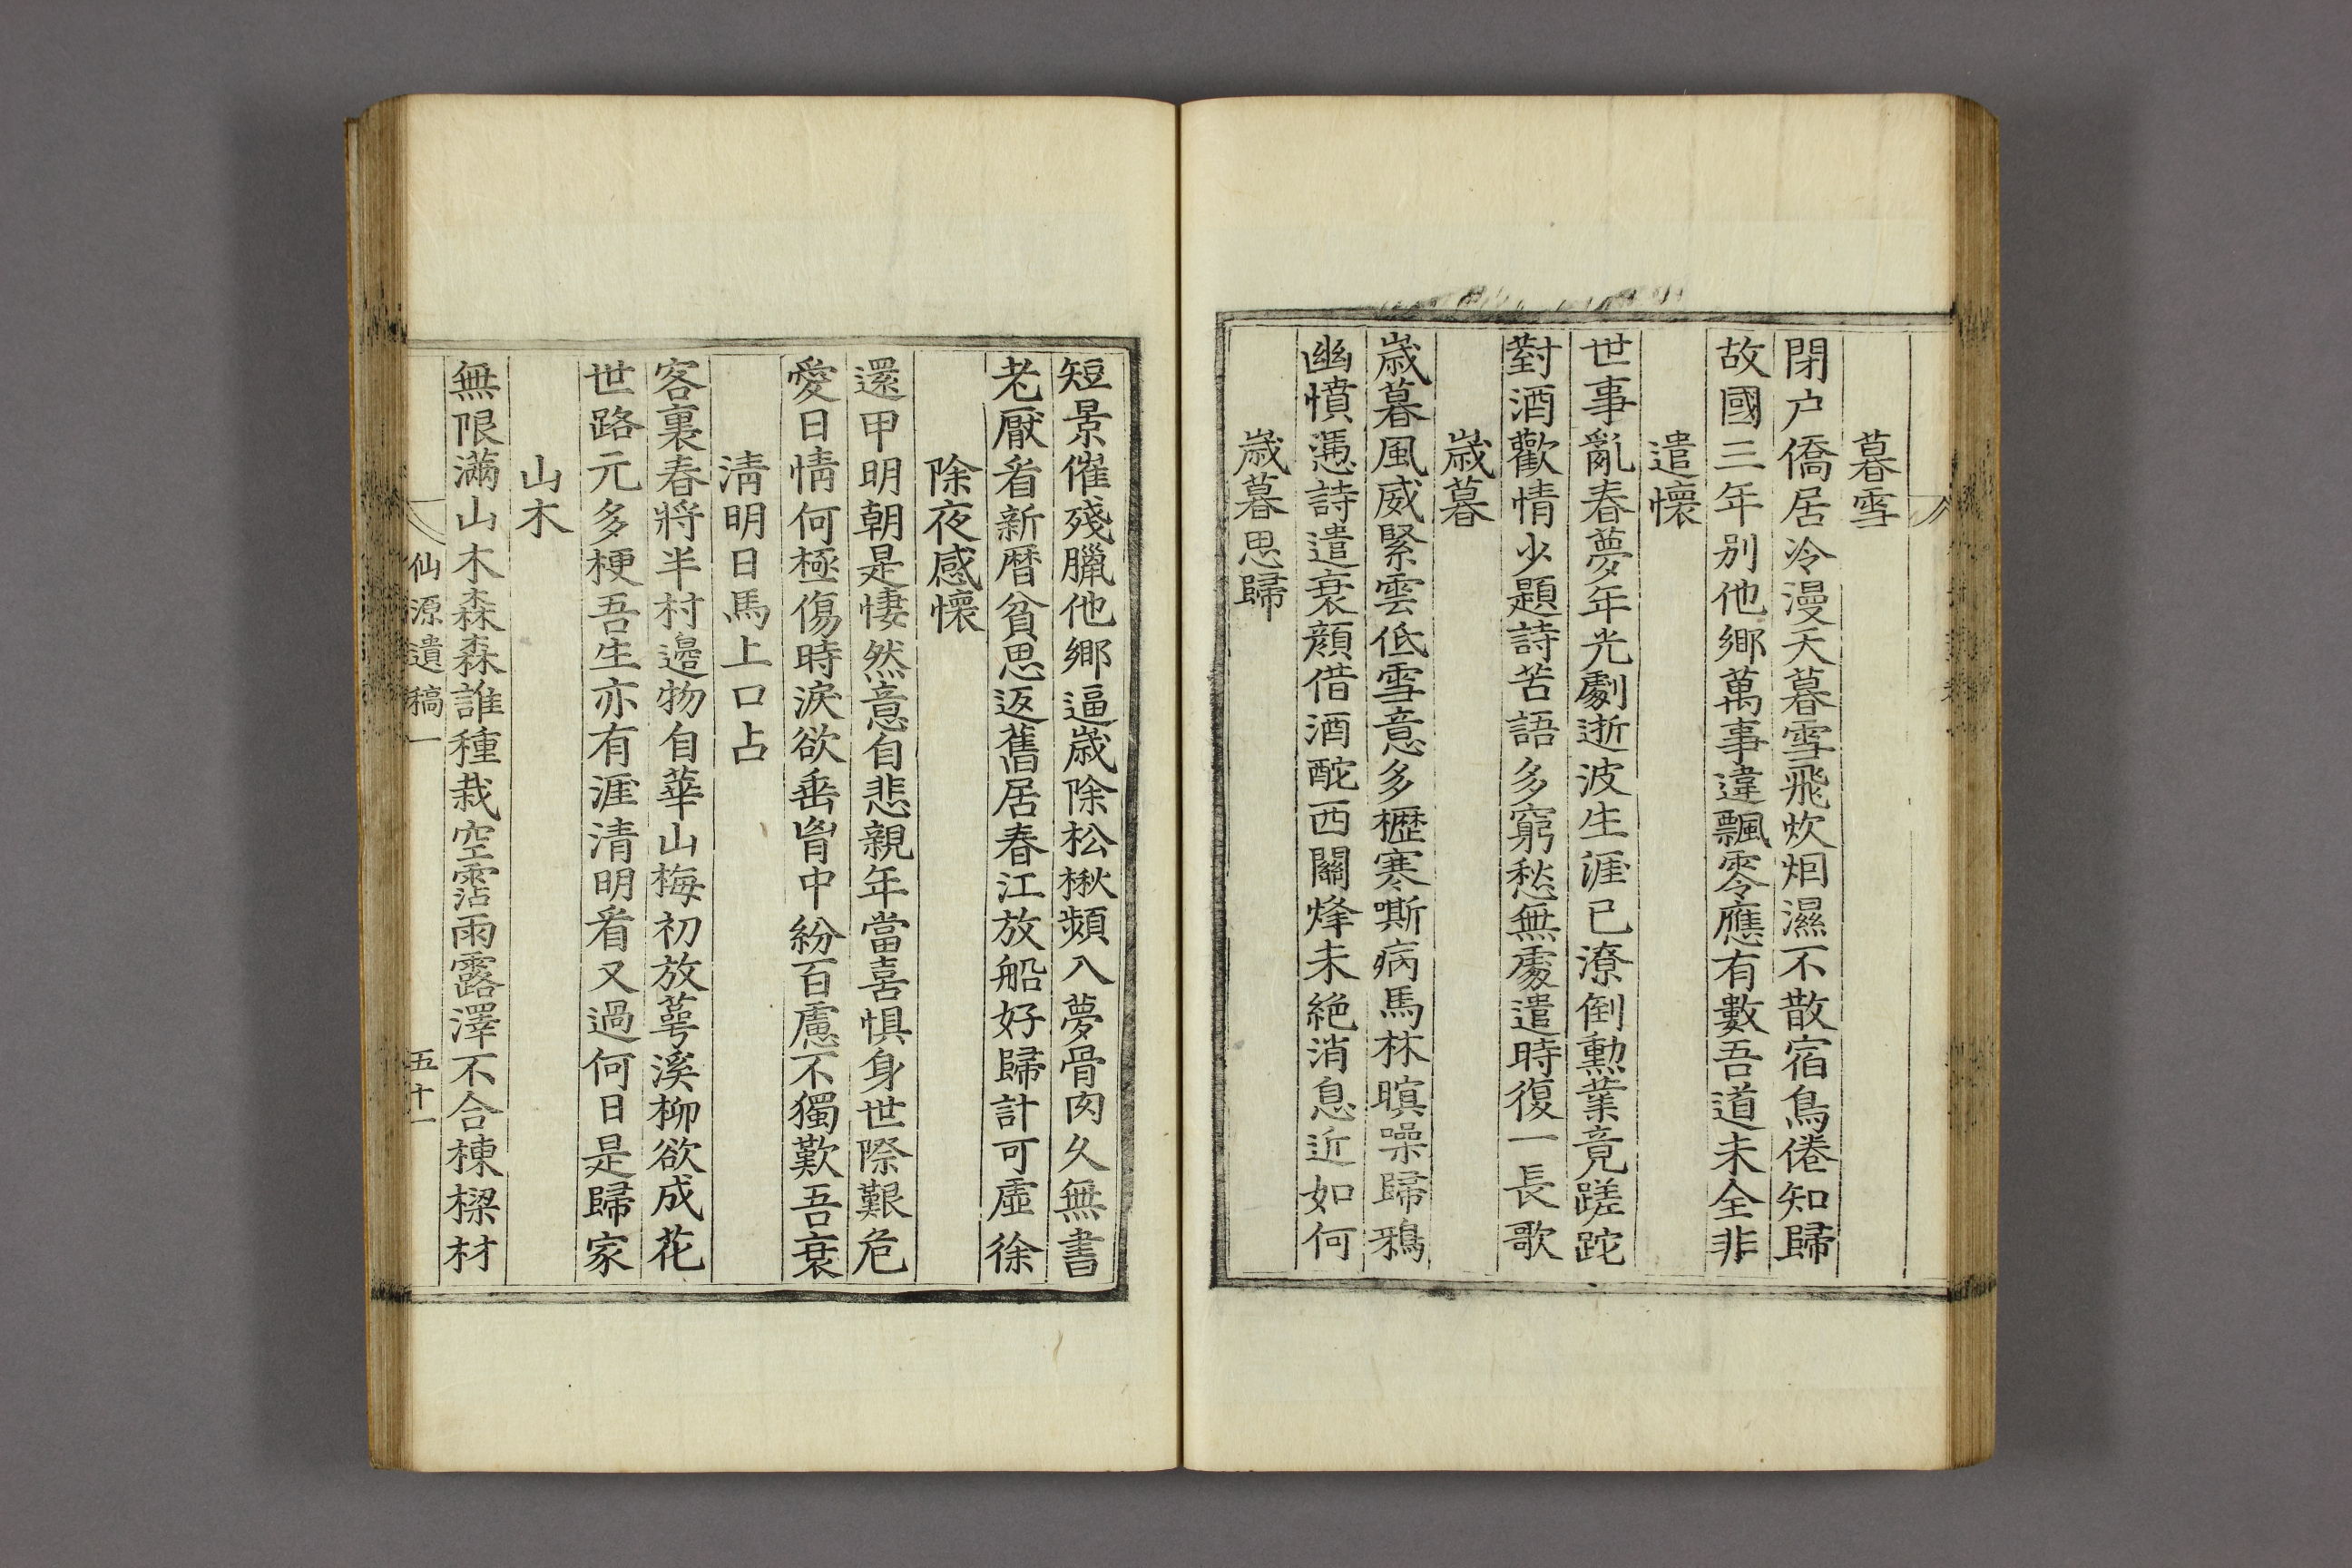 暮雪
閉户僑居冷漫天暮雪飛炊烟濕不散宿鳥倦知歸
故國三年别他鄉萬事違飄零應有數吾道未全非
遣懷
世事亂春夢年光劇逝波生涯已潦倒勳業竟蹉跎
對酒歡情少題詩苦語多窮愁無處遣時復一長歌
歳暮
歳暮風威緊雲低雪意多櫪寒嘶病馬林暝噪歸鴉
幽憤憑詩遣衰顔借酒酡西關烽未絶消息近如何
歳暮思歸
短景催殘臘他鄉逼歳除松楸頻入夢骨肉久無書
老厭看新曆貧思返舊居春江放船好歸計可虛徐
除夜感懷
還甲明朝是悽然意自悲親年當喜惧身世際艱危
愛日情何極傷時淚欲垂胷中紛百慮不獨歎吾衰
淸明日馬上口占
客裏春將半村邉物自華山梅初放萼溪柳欲成花
世路元多梗吾生亦有涯清明看又過何日是歸家
山木
無限滿山木森森誰種栽空霑雨露澤不合棟樑材
仙源遺稿一
五十一